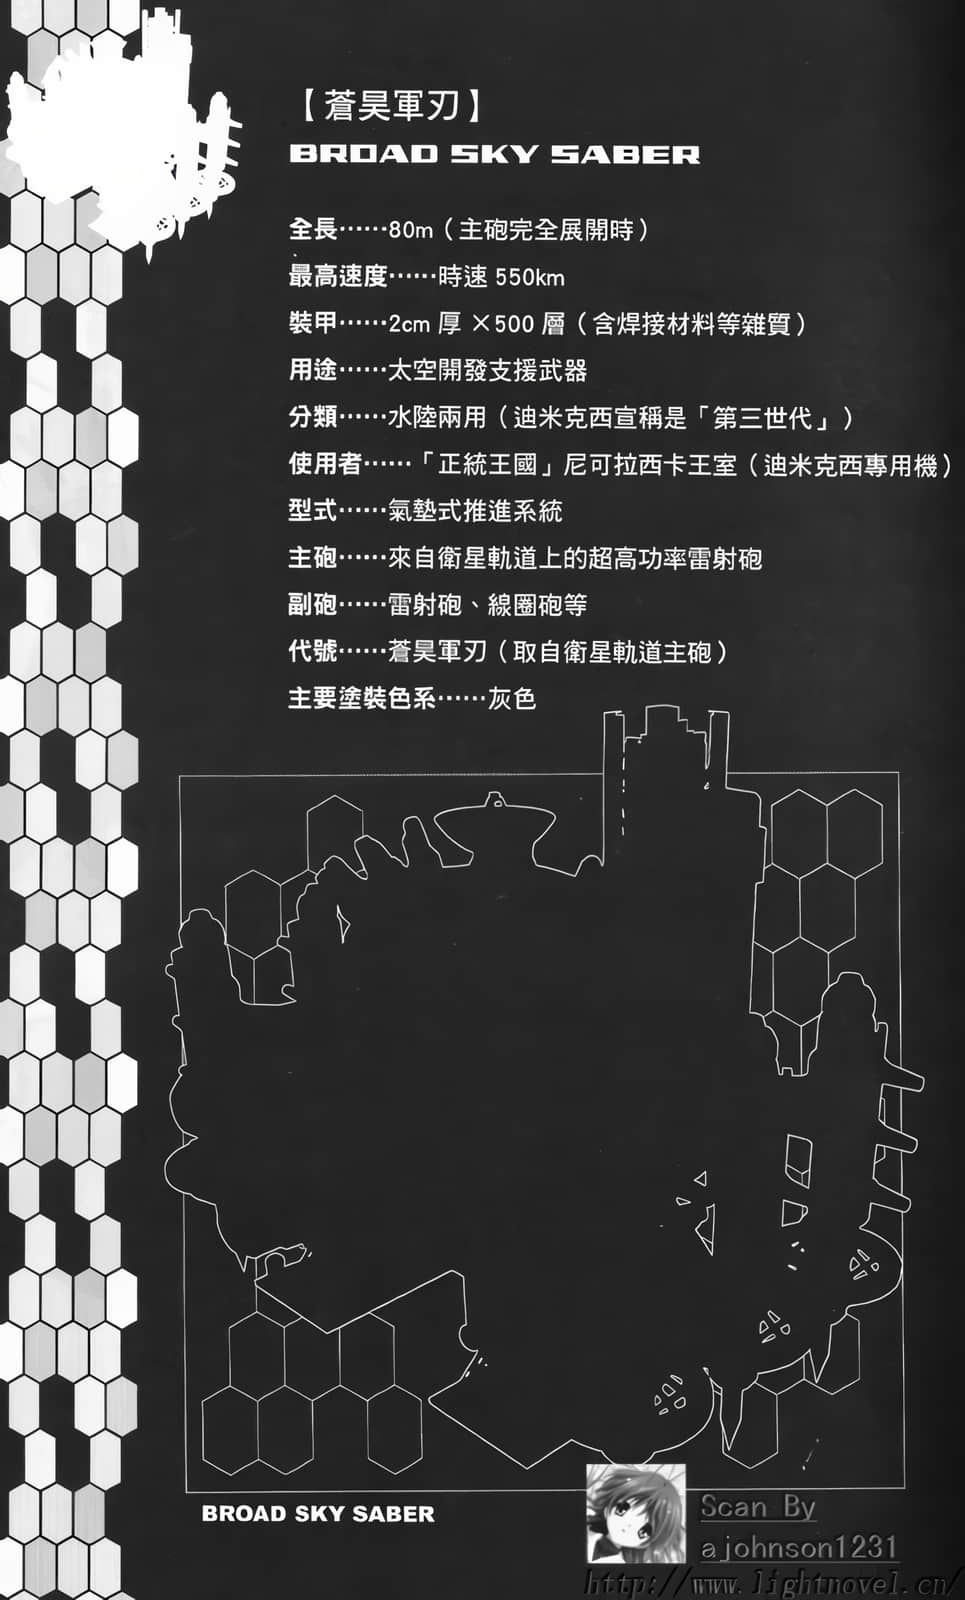 【蒼昊軍刃】
BROAD SKY SABER
全長……80m（主砲完全展開時）
最高速度……時速 550km
裝甲……2cm 厚 ×500 層（含焊接材料等雜質）
用途……太空開發支援武器
分類……水陸兩用（迪米克西宣稱是「第三世代」）
使用者……「正統王國」尼可拉西卡王室（迪米克西專用機）
型式……氣墊式推進系統
主砲……來自衛星軌道上的超高功率雷射砲
副砲……雷射砲、線圈砲等
代號……蒼昊軍刃（取自衛星軌道主砲）
主要塗裝色系……灰色
BROAD SKY SABER
Scan By
ajohnson1231
http://www.lightnovel.cn/